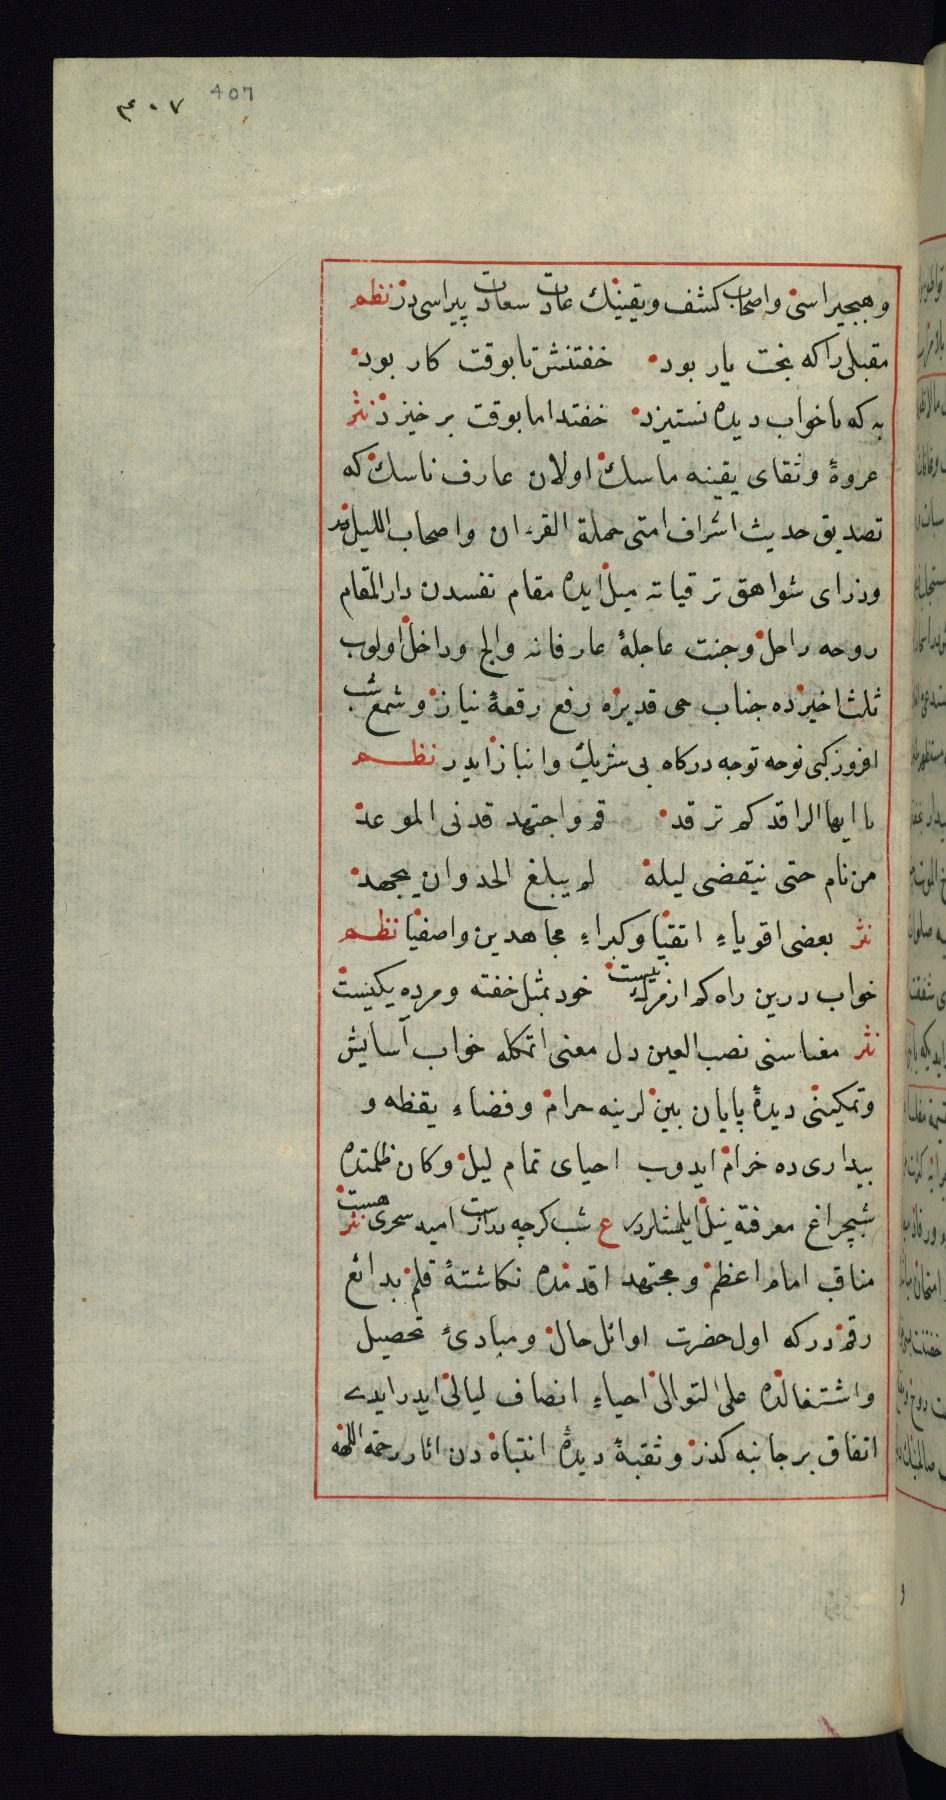 ٤٠٧ 407
وهجیراسی واصحاب کشف ویقینك عادت سعادت پیراسی در نظم
مقبلی را که بخت یار بود خفتنش تا بوقت کار بود
به که با خواب دیده نستیزد خفتد اما بوقت بر خیزد نثر
عروۀ وثقای یقینه ماسك اولان عارف ناسك که
تصدیق حدیث اشراف امتی حملة القرءان واصحاب اللیل
وذرای شواهق ترقیاته میل ایده مقام نفسدن دار المقام
روحه راحل وجنت عاجلۀ عارفانه والج وداخل اولوب
ثلث اخیرده جناب حی قدیره رفع رقعۀ نیاز وشمع شب
افروز کبی نوحه توجه درکاه بی شریك وانباز ایدر نظم
یا ایها الراقد کم ترقد قم واجتهد قد نی الموعد
من نام حتی ینقضی لیله لم یبلغ الحد وان یجهد
نثر بعضی اقویاء اتقیا وکبراء مجاهدین واصفیا نظم
خواب درین راه کم از مرك نیست خود بمثل خفته ومرده یکیست
نثر مغناسنی نصب العین دل معنی اتمکله خواب آسایش
وتمکینی دیدۀ پایان بین لرینه حرام وفضاء یقظه و
بیداری ده خرام ایدوب احیای تمام لیل وکان ظلمتده
شبچراغ معرفة نیل ایلمشلردر ع شب کرچه درازست امید سحری هست نثر
مناقب امام اعظم ومجتهد اقدمده نکاشتۀ قلم بدائع
رقم در که اول حضرت اوائل حال ومبادئ تحصیل
واشتغالده علی التوالی احیاء انصاف لیالی ایدر ایدی
اتفاق بر جانبه کذر وثقبۀ دیدۀ انتباه دن اثار رحمة اللهه